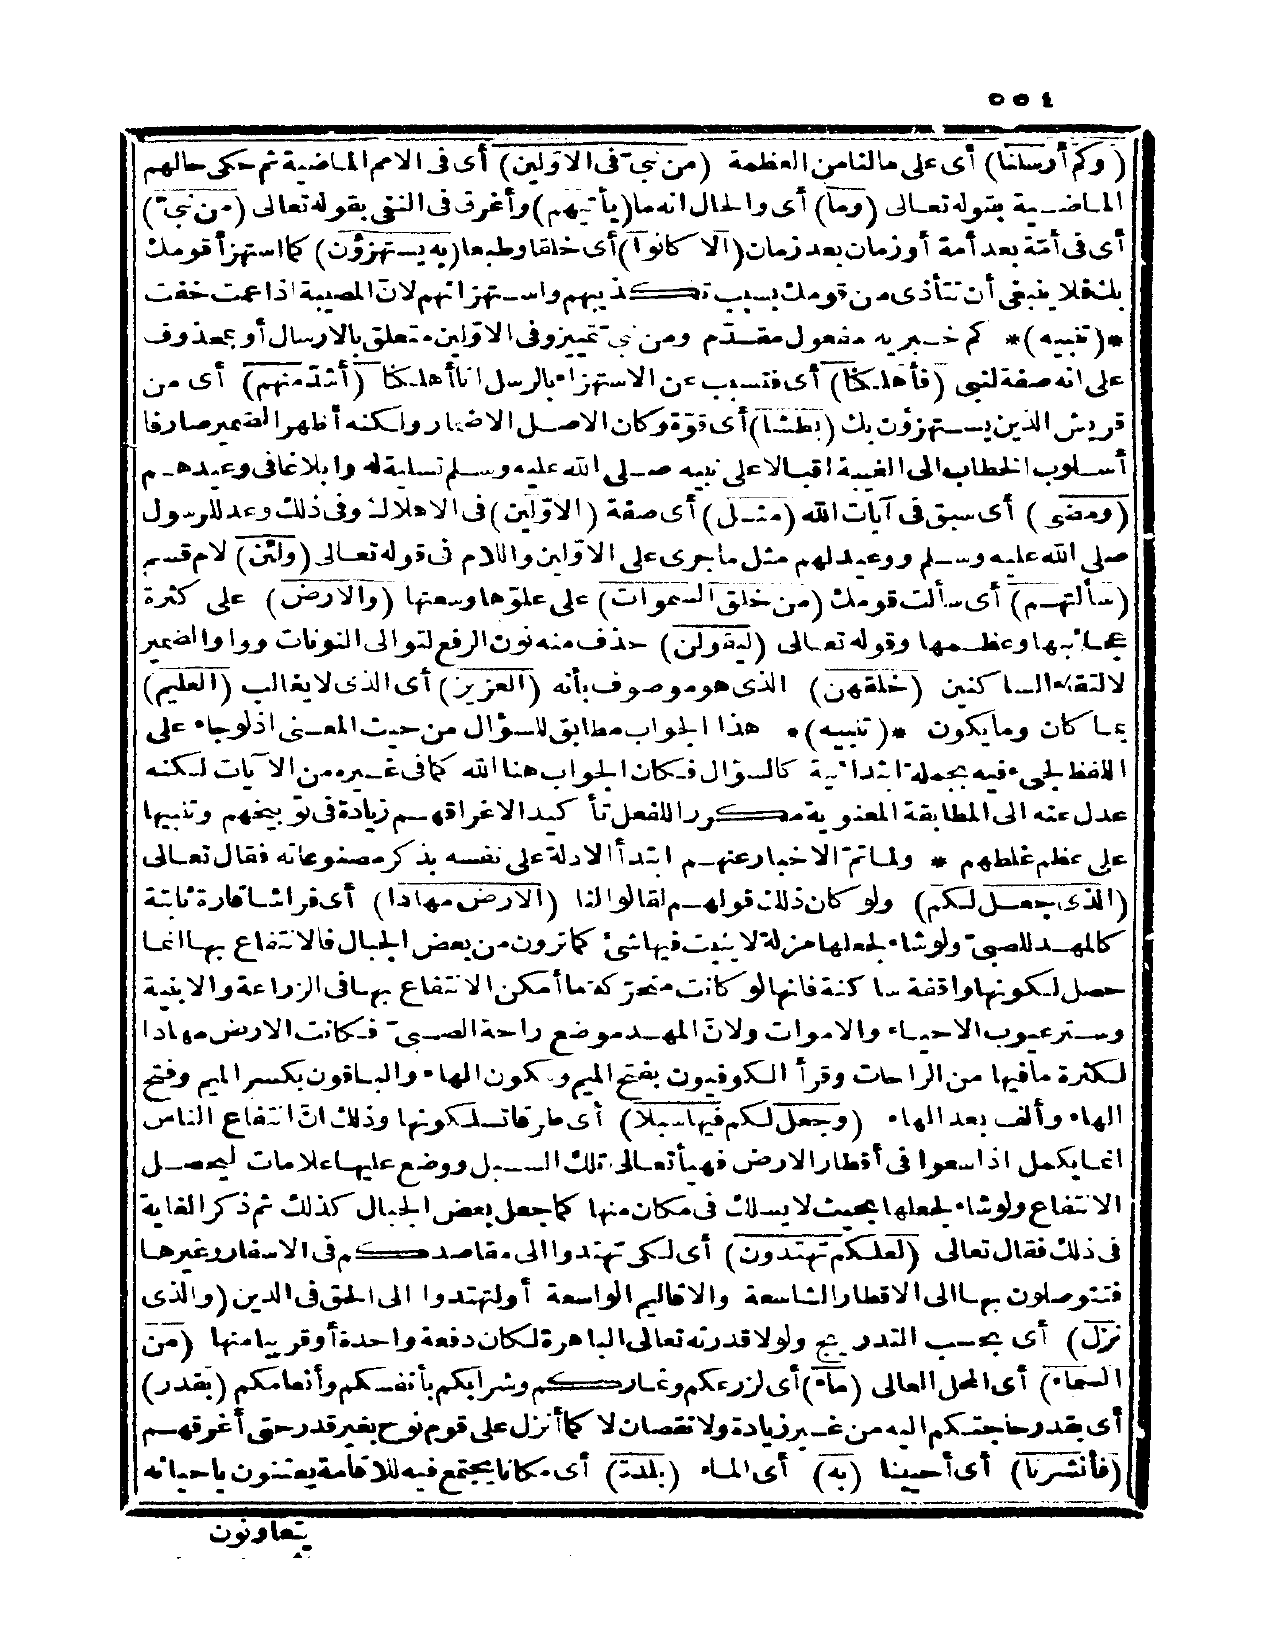 ٥٥٤
(وكم أرسلنا) أى على مالنا من العظمة (من نبىّ فى الاوّلين) أى فى الامم الماضية ثم حكى حالهم
الماضية بقوله تعالى (وما) أى والحال انه ما (يأتيهم) وأغرق فى النفى بقوله تعالى (من نبىّ)
أى فى أمّة بعد أمة أو زمان بعد زمان (الا كانوا) أى خلقا وطبعا (به يستهزؤن) كما استهزأ قومك
بك فلا ينبغى أن تتأذى من قومك بسبب تكذيبهم واستهزائهم لانّ المصيبة اذا عمت خفت
*(تنبيه)* كم خبرية مفعول مقدّم ومن نبىّ تمييز وفى الاوّلين متعلق بالارسال أو بمحذوف
على انه صفة لنبى (فأهلكنا) أى فتسبب عن الاستهزاء بالرسل انا أهلكنا (أشدّ منهم) أى من
قريش الذين يستهزؤن بك (بطشا) أى قوّة وكان الاصل الاضمار ولكنه أظهر الضمير صارفا
أسلوب الخطاب الى الغيبة اقبالا على نبيه صلى الله عليه وسلم تسلية له وابلاغا فى وعيدهم
(ومضى) أى سبق فى آيات الله (مثل) أى صفة (الاوّلين) فى الاهلاك وفى ذلك وعد للرسول
صلى الله عليه وسلم ووعيد لهم مثل ما جرى على الاوّلين واللام فى قوله تعالى (ولئن) لام قسم
(سألتهم) أى سألت قومك (من خلق السموات) على علوّها وسعتها (والارض) على كثرة
عجائبها وعظمها وقوله تعالى (ليقولن) حذف منه نون الرفع لتوالى النونات وواو الضمير
لالتقاء الساكنين (خلقهن) الذى هو موصوف بأنه (العزيز) أى الذى لا يغالب (العليم)
بما كان وما يكون *(تنبيه)* هذا الجواب مطابق للسؤال من حيث المعنى اذ لو جاء على
اللفظ لجىء فيه بجملة ابتدائية كالسؤال فكان الجواب هنا الله كما فى غيره من الآيات لكنه
عدل عنه الى المطابقة المعنوية مكررا للفعل تأكيدا لاغراقهم زيادة فى توبيخهم وتنبيها
على عظم غلطهم * ولما تمّ الاخبار عنهم ابتدأ الادلة على نفسه بذكر مصنوعاته فقال تعالى
(الذى جعل لكم) ولو كان ذلك قولهم لقالوا لنا (الارض مهادا) أى فراشا قارة ثابتة
كالمهد للصبىّ ولو شاء لجعلها مزلة لا ينبت فيها شىء كما ترون من بعض الجبال فالانتفاع بها انما
حصل لكونها واقفة ساكنة فانها لو كانت متحرّكة ما أمكن الانتفاع بها فى الزراعة والابنية
وستر عيوب الاحياء والاموات ولانّ المهد موضع راحة الصبىّ فكانت الارض مهادا
لكثرة ما فيها من الراحات وقرأ الكوفيون بفتح الميم وسكون الهاء والباقون بكسر الميم وفتح
الهاء وألف بعد الهاء (وجعل لكم فيها سبلا) أى طرقا تسلكونها وذلك انّ انتفاع الناس
انما يكمل اذا سعوا فى أقطار الارض فهيأ تعالى تلك السبل ووضع عليها علامات ليحصل
الانتفاع ولو شاء لجعلها بحيث لا يسلك فى مكان منها كما جعل بعض الجبال كذلك ثم ذكر الغاية
فى ذلك فقال تعالى (لعلكم تهتدون) أى لكى تهتدوا الى مقاصدكم فى الاسفار وغيرها
فتتوصلون بها الى الاقطار الشاسعة والاقاليم الواسعة أو لتهتدوا الى الحق فى الدين (والذى
نزّل) أى بحسب التدريج ولولا قدرته تعالى الباهرة لكان دفعة واحدة أو قريبا منها (من
السماء) أى المحل العالى (ماء) أى لزرعكم وثماركم وشرابكم بأنفسكم وأنعامكم (بقدر)
أى بقدر حاجتكم اليه من غير زيادة ولا نقصان لا كما أنزل على قوم نوح بغير قدر حتى أغرقهم
(فأنشرنا) أى أحيينا (به) أى الماء (بلدة) أى مكانا يجتمع فيه للاقامة يعتنون باحيائه
يتعاونون